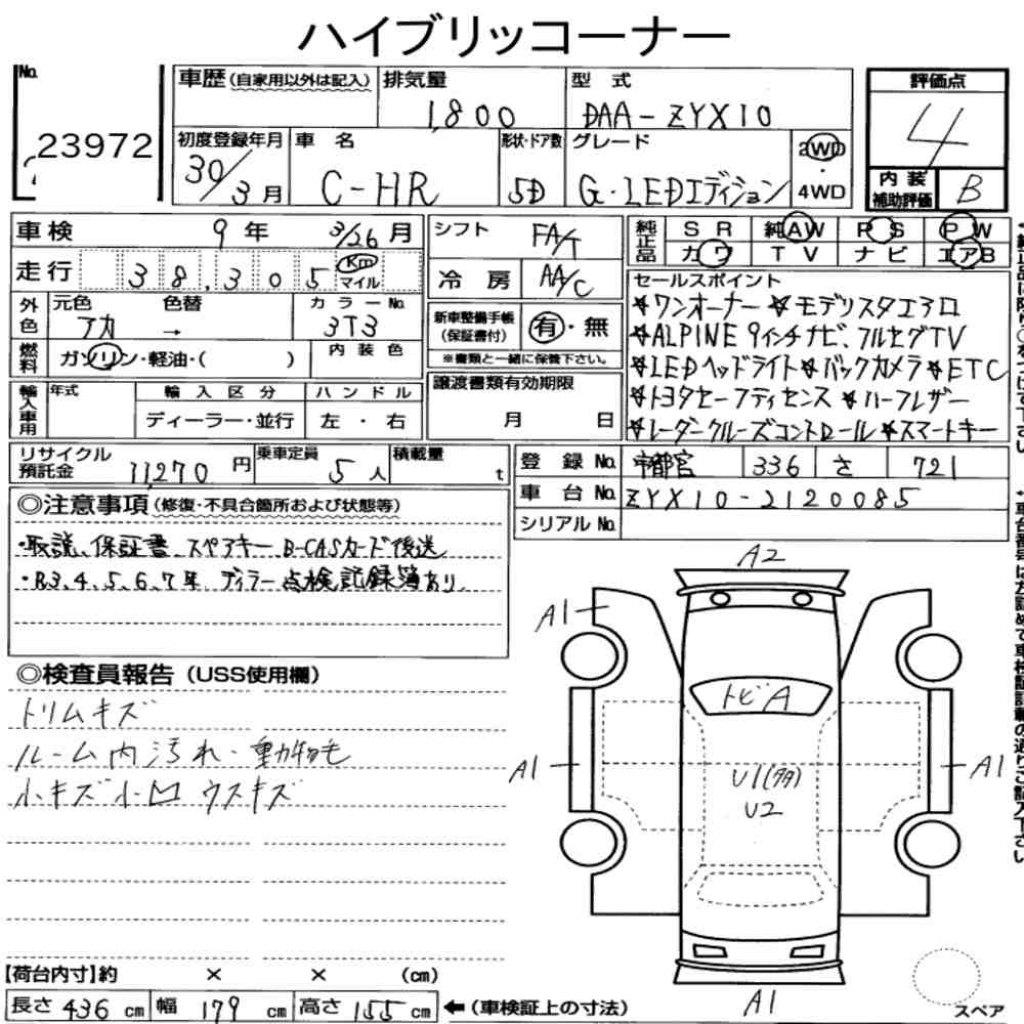 ハイブリッコーナー
No.
23972
車歴(自家用以外は記入)
排気量
1,800
型式
DAA-ZYX10
評価点
4
初度登録年月
30/3月
車名
C-HR
形状・ドア数
5D
グレード
G・LEDエディション
2WD
・
4WD
内装
補助評価
B
車検 9年 3/26月
シフト FA/T
純正品
SR 純AW PS PW
カワ TV ナビ エアB
走行 38,305 Km
マイル
冷房 AA/C
セールスポイント
★ワンオーナー★モデリスタエアロ
★ALPINE9インチナビ、フルセグTV
★LEDヘッドライト★バックカメラ★ETC
★トヨタセーフティセンス★ハーフレザー
★レーダークルーズコントロール★スマートキー
外色
元色 色替 カラーNo.
アカ → 3T3
新車整備手帳
(保証書付)
有・無
※書類と一緒に保管下さい。
燃料
ガソリン・軽油・( )
内装色
輸入車用
年式
輸入区分
ハンドル
ディーラー・並行
左・右
譲渡書類有効期限
月 日
リサイクル
預託金 11,270円
乗車定員 5人
積載量 t
登録No. 宇都宮 336 さ 721
車台No. ZYX10-2120085
シリアルNo.
◎注意事項(修復・不具合箇所および状態等)
・取説、保証書、スペアキー、B-CASカード後送
・R3、4、5、6、7年、ディラー点検記録簿あり。
◎検査員報告(USS使用欄)
トリムキズ
ルーム内汚れ・動物毛
小キズ小凹ウスキズ
A2
A1
トビA
A1
A1
U1(タタ)
U2
A1
スペア
【荷台内寸】約 × × (cm)
長さ 436 cm 幅 179 cm 高さ 155 cm ←(車検証上の寸法)